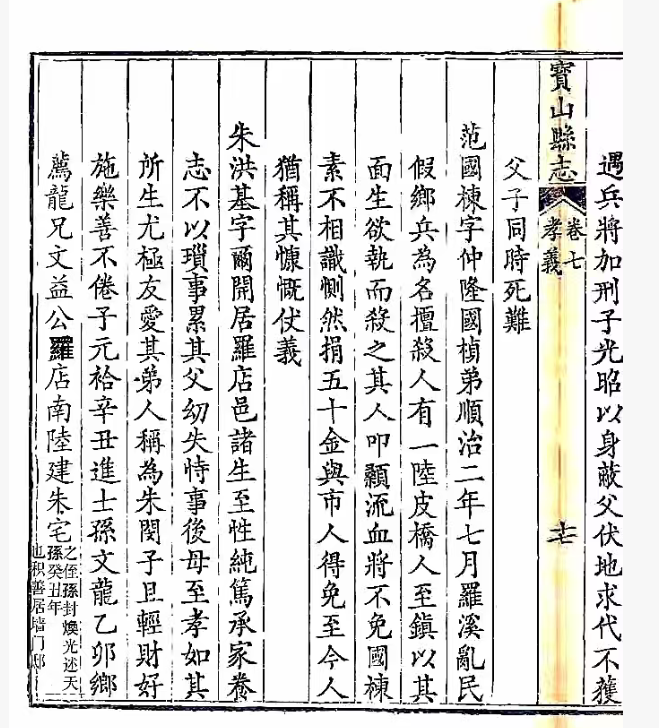 遇兵將加刑子光昭以身蔽父伏地求代不獲
寶山縣志
卷七
孝義
十七
父子同時死難
范國棟字仲隆國楨弟順治二年七月羅溪亂民
假鄉兵為名擅殺人有一陸皮橋人至鎮以其
面生欲執而殺之其人叩顙流血將不免國棟
素不相識惻然捐五十金與市人得免至今人
猶稱其慷慨仗義
朱洪基字爾開居羅店邑諸生至性純篤承家養
志不以瑣事累其父幼失恃事後母至孝如其
所生尤極友愛其弟人稱為朱閔子且輕財好
施樂善不倦子元祫辛丑進士孫文龍乙卯鄉
薦龍兄文益公羅店南陸建朱宅
之侄孫封煥光述天
孫癸丑年
也积善居墙门邸